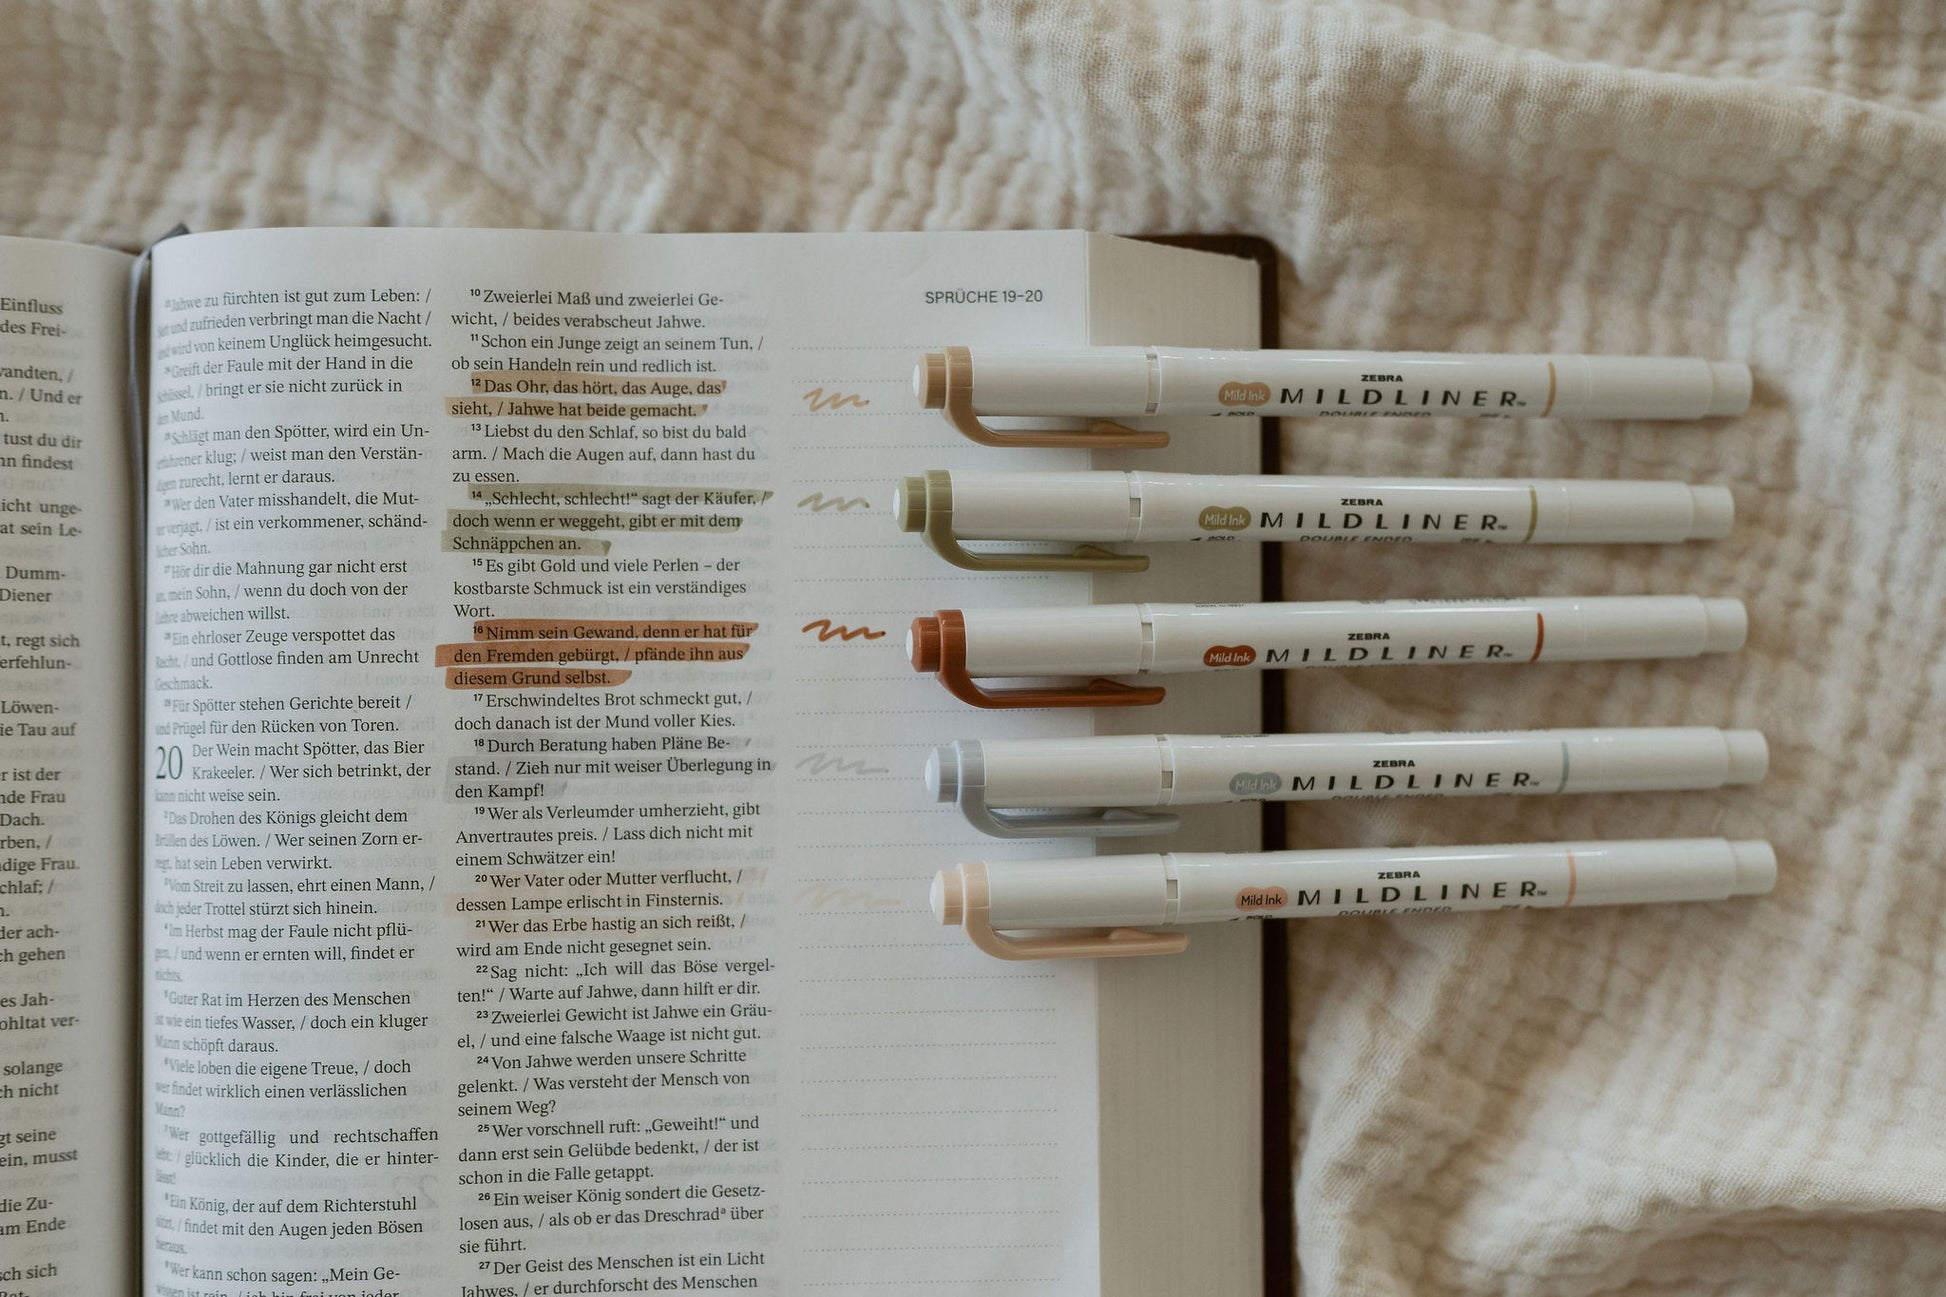 Einfluss
des Frei-
wandten, /
n. / Und er
n.
tust du dir
nn findest
icht unge-
at sein Le-
Dumm-
Diener
t, regt sich
erfehlun-
Löwen-
ie Tau auf
r ist der
nde Frau
Dach.
rben, /
dige Frau.
chlaf; /
n.
der ach-
ch gehen
es Jah-
ohltat ver-
solange
ch nicht
gt seine
ein, musst
die Zu-
am Ende
sch sich
Jahwe zu fürchten ist gut zum Leben: /
und zufrieden verbringt man die Nacht /
wird von keinem Unglück heimgesucht.
Greift der Faule mit der Hand in die
Schüssel, / bringt er sie nicht zurück in
den Mund.
Schlägt man den Spötter, wird ein Un-
erfahrener klug; / weist man den Verstän-
digen zurecht, lernt er daraus.
Wer den Vater misshandelt, die Mut-
ter verjagt, / ist ein verkommener, schänd-
licher Sohn.
Hör dir die Mahnung gar nicht erst
an, mein Sohn, / wenn du doch von der
Lehre abweichen willst.
Ein ehrloser Zeuge verspottet das
Recht, / und Gottlose finden am Unrecht
Geschmack.
Für Spötter stehen Gerichte bereit /
und Prügel für den Rücken von Toren.
20 Der Wein macht Spötter, das Bier
Krakeeler. / Wer sich betrinkt, der
kann nicht weise sein.
Das Drohen des Königs gleicht dem
Brüllen des Löwen. / Wer seinen Zorn er-
regt, hat sein Leben verwirkt.
Vom Streit zu lassen, ehrt einen Mann, /
doch jeder Trottel stürzt sich hinein.
Im Herbst mag der Faule nicht pflü-
gen, / und wenn er ernten will, findet er
nichts.
Guter Rat im Herzen des Menschen
ist wie ein tiefes Wasser, / doch ein kluger
Mann schöpft daraus.
Viele loben die eigene Treue, / doch
wer findet wirklich einen verlässlichen
Mann?
Wer gottgefällig und rechtschaffen
lebt: / glücklich die Kinder, die er hinter-
lässt!
Ein König, der auf dem Richterstuhl
sitzt, / findet mit den Augen jeden Bösen
heraus.
Wer kann schon sagen: „Mein Ge-
wissen ist rein, / ich bin frei von jeder
10 Zweierlei Maß und zweierlei Ge-
wicht, / beides verabscheut Jahwe.
11 Schon ein Junge zeigt an seinem Tun, /
ob sein Handeln rein und redlich ist.
12 Das Ohr, das hört, das Auge, das
sieht, / Jahwe hat beide gemacht.
13 Liebst du den Schlaf, so bist du bald
arm. / Mach die Augen auf, dann hast du
zu essen.
14 „Schlecht, schlecht!“ sagt der Käufer, /
doch wenn er weggeht, gibt er mit dem
Schnäppchen an.
15 Es gibt Gold und viele Perlen – der
kostbarste Schmuck ist ein verständiges
Wort.
16 Nimm sein Gewand, denn er hat für
den Fremden gebürgt, / pfände ihn aus
diesem Grund selbst.
17 Erschwindeltes Brot schmeckt gut, /
doch danach ist der Mund voller Kies.
18 Durch Beratung haben Pläne Be-
stand. / Zieh nur mit weiser Überlegung in
den Kampf!
19 Wer als Verleumder umherzieht, gibt
Anvertrautes preis. / Lass dich nicht mit
einem Schwätzer ein!
20 Wer Vater oder Mutter verflucht, /
dessen Lampe erlischt in Finsternis.
21 Wer das Erbe hastig an sich reißt, /
wird am Ende nicht gesegnet sein.
22 Sag nicht: „Ich will das Böse vergel-
ten!“ / Warte auf Jahwe, dann hilft er dir.
23 Zweierlei Gewicht ist Jahwe ein Gräu-
el, / und eine falsche Waage ist nicht gut.
24 Von Jahwe werden unsere Schritte
gelenkt. / Was versteht der Mensch von
seinem Weg?
25 Wer vorschnell ruft: „Geweiht!“ und
dann erst sein Gelübde bedenkt, / der ist
schon in die Falle getappt.
26 Ein weiser König sondert die Gesetz-
losen aus, / als ob er das Dreschrad a über
sie führt.
27 Der Geist des Menschen ist ein Licht
Jahwes, / er durchforscht des Menschen
SPRÜCHE 19–20
ZEBRA
Mild Ink MILDLINER™
DOUBLE ENDED
ZEBRA
Mild Ink MILDLINER™
BOLD DOUBLE ENDED
ZEBRA
Mild Ink MILDLINER™
ZEBRA
Mild Ink MILDLINER™
DOUBLE ENDED
ZEBRA
Mild Ink MILDLINER™
DOUBLE ENDED